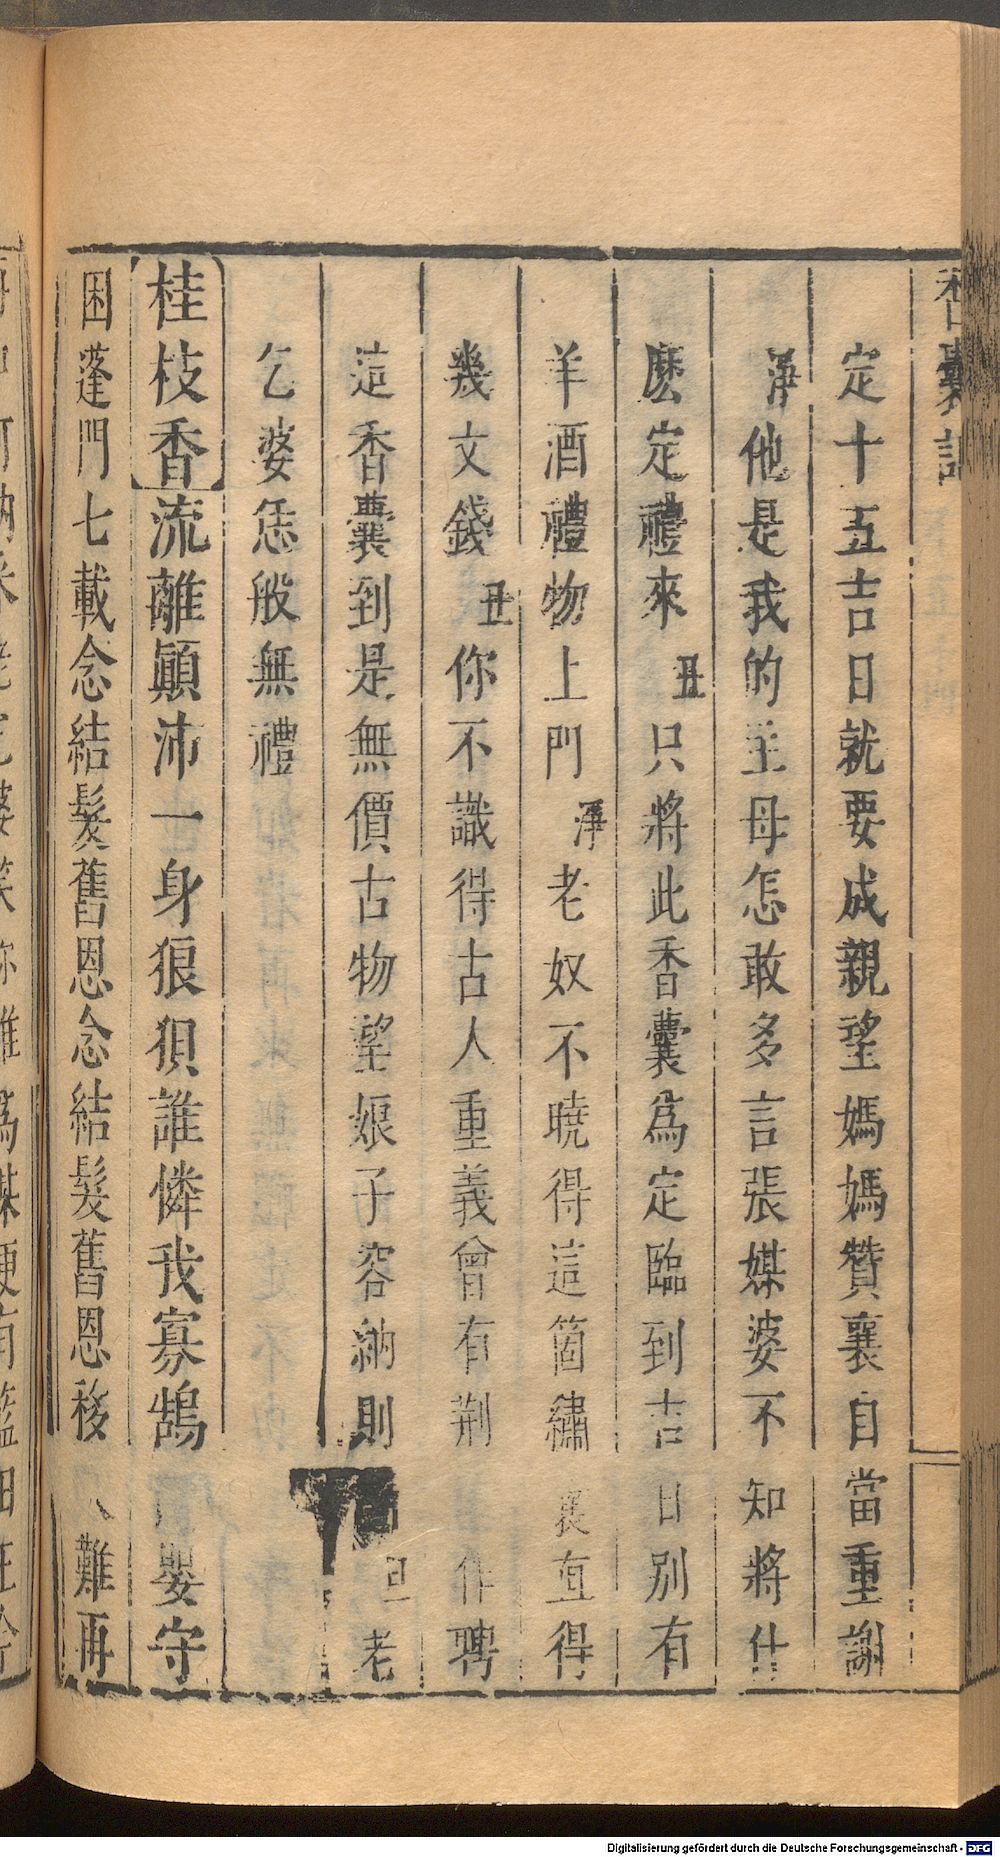 香囊記
定十五吉日就要成親望媽媽贊襄自當重謝
淨他是我的主母怎敢多言張媒婆不知將什
麽定禮來丑只將此香囊爲定臨到吉日別有
羊酒禮物上門淨老奴不曉得這箇繡囊直得
幾文錢丑你不識得古人重義曾有荆作聘
這香囊到是無價古物望娘子容納則老
乞婆恁般無禮
桂枝香流離顚沛一身狼狽誰憐我寡鵠嬰守
困蓬門七載念結髮舊恩念結髮舊恩移難再
Digitalisierung gefördert durch die Deutsche Forschungsgemeinschaft - DFG